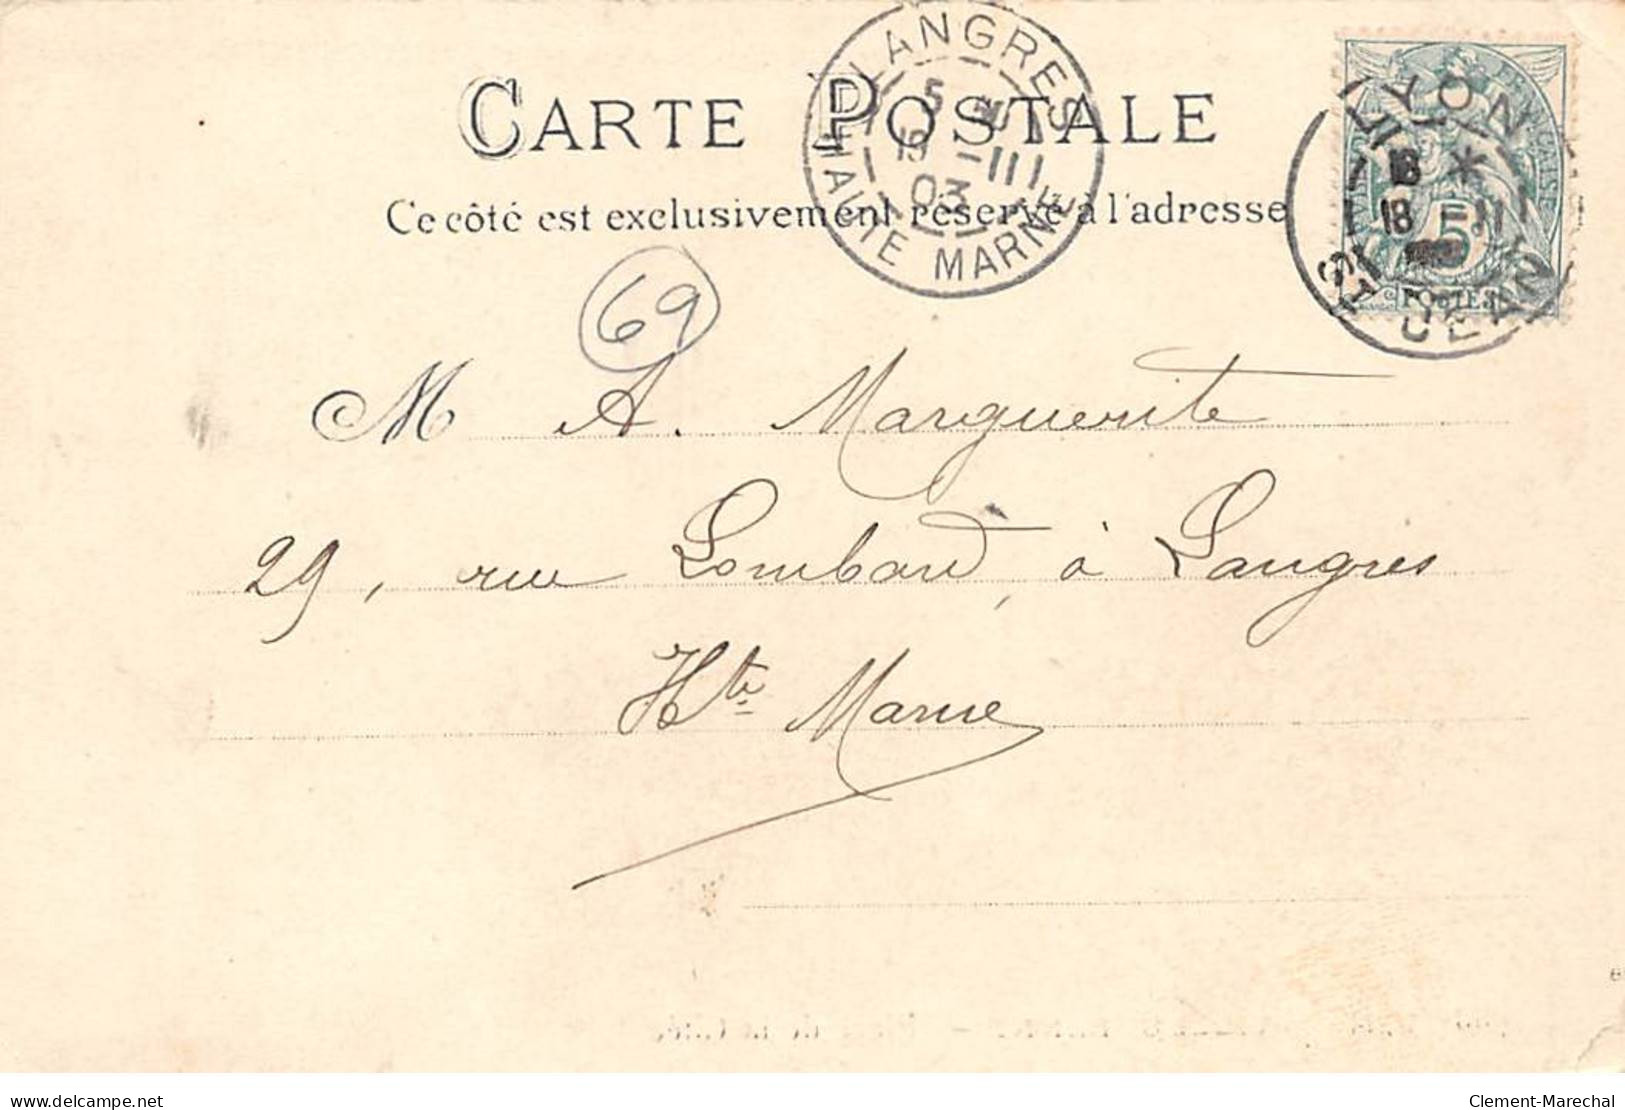 CARTE POSTALE
Ce côté est exclusivement réservé à l'adresse
LANGRES
5
19 -III
03
HAUTE MARNE
LYON
18 *
18 -III
ST JEAN
5
POSTES
69
M A. Marguerite
29, rue Lombard, à Langres
Hte Marne
Clement-Marechal
delcampe.net